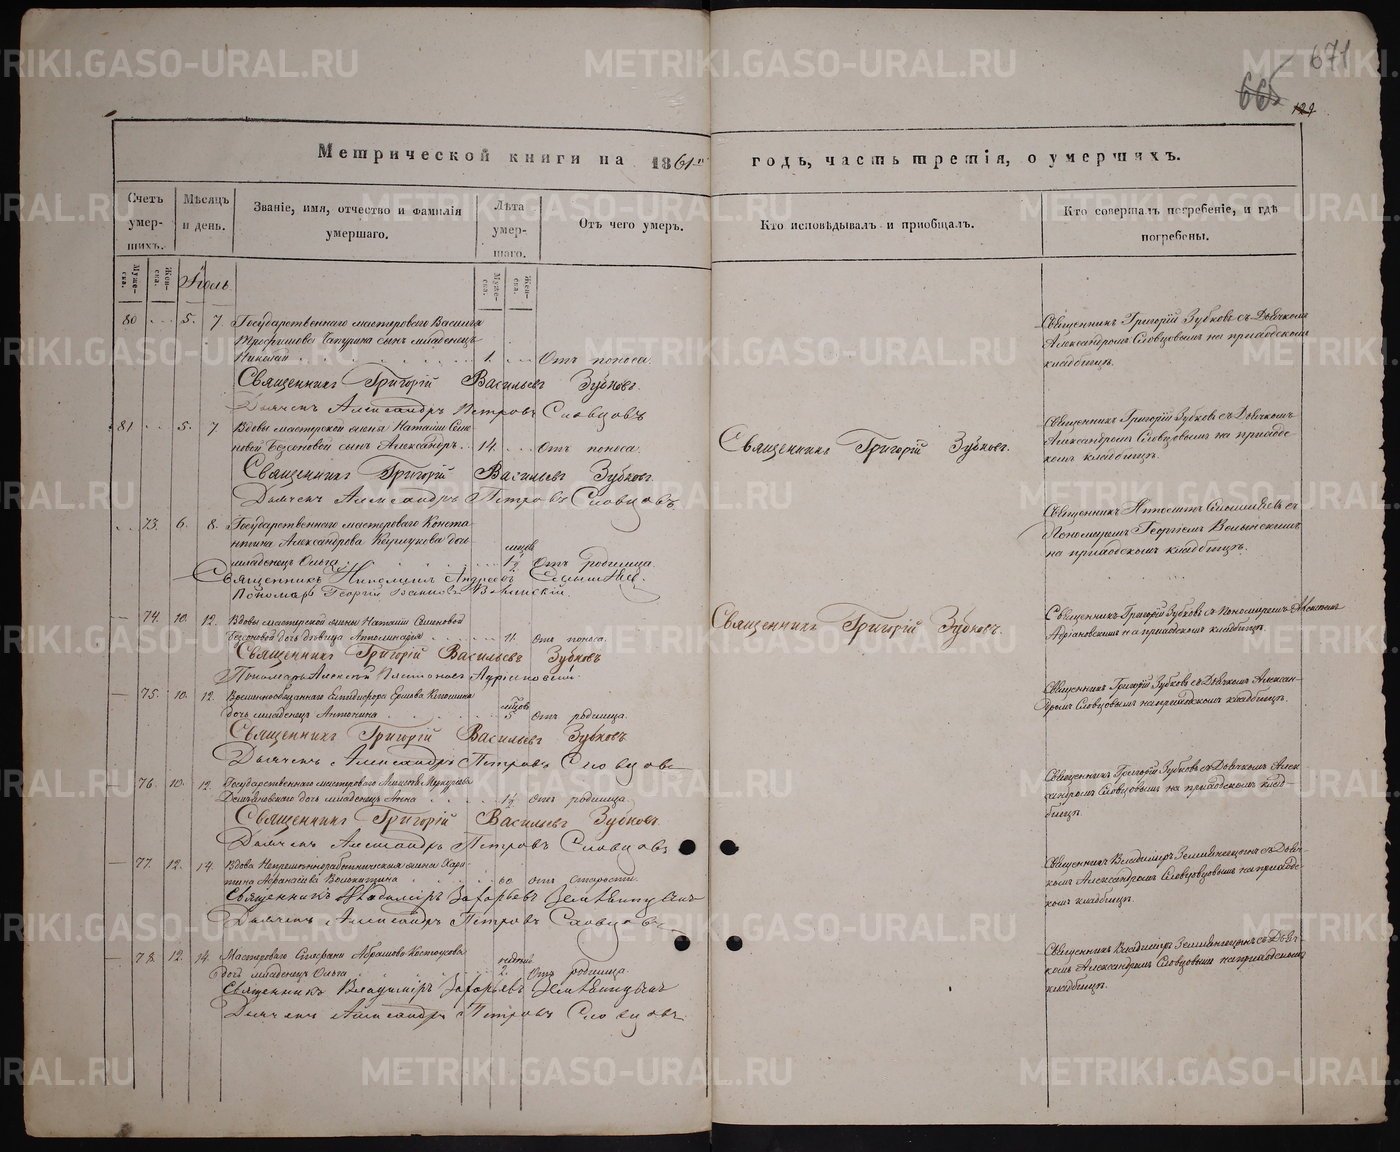 671
665
129
Метрической книги на 1861й годъ, часть третія, о умершихъ.
Счетъ умер-шихъ.
Муже-ска.
Жен-ска.
Мѣсяцъ и день.
Званіе, имя, отчество и фамилія умершаго.
Лѣта умер-шаго.
Муже-ска.
Жен-ска.
Отъ чего умеръ.
Кто исповѣдывалъ и пріобщалъ.
Кто совершалъ погребеніе, и гдѣ погребены.
Іюль
80 5. 7 Государственнаго мастероваго Василья
Трофимова сынъ младенецъ
Николай 1. Отъ поноса.
Священникъ Григорій Васильевъ Зубковъ.
Дьячекъ Александръ Петровъ Словцовъ
Священникъ Григорій Зубковъ съ Дьячкомъ
Александромъ Словцовымъ на приходскомъ
кладбищѣ.
81 5. 7 Вдовы мастерской жены Наталіи Семе-
новой Безсоновой сынъ Александръ. 14. Отъ поноса.
Священникъ Григорій Васильевъ Зубковъ.
Дьячекъ Александръ Петровъ Словцовъ.
Священникъ Григорій Зубковъ.
Священникъ Григорій Зубковъ съ Дьячкомъ
Александромъ Словцовымъ на приход-
комъ кладбищѣ.
73. 6. 8. Государственнаго мастероваго Конста-
нтина Александрова дочь
младенецъ Ольга 1½ Отъ родимца.
Священникъ Андреевъ
Пономарь Георгій Волынскій.
Священникъ съ
Пономаремъ Георгіемъ Волынскимъ
на приходскомъ кладбищѣ.
74. 10. 12. Вдовы мастерской жены Наталіи Семеновой
Безсоновой дочь дѣвица Аполинарія 11. Отъ поноса.
Священникъ Григорій Васильевъ Зубковъ
Пономарь Алексѣй Адріановскій.
Священникъ Григорій Зубковъ.
Священникъ Григорій Зубковъ съ Пономаремъ Алексѣемъ
Адріановскимъ на приходскомъ кладбищѣ.
75. 10. 12. Ершова
дочь младенецъ Антонина 5 мѣсяцовъ Отъ родимца.
Священникъ Григорій Васильевъ Зубковъ
Дьячекъ Александръ Петровъ Словцовъ
Священникъ Григорій Зубковъ съ Дьячкомъ Алексан-
дромъ Словцовымъ на приходскомъ кладбищѣ.
76. 10. 12. Государственнаго мастероваго
дочь младенецъ Анна 1½ Отъ родимца
Священникъ Григорій Васильевъ Зубковъ.
Дьячекъ Александръ Петровъ Словцовъ
Священникъ Григорій Зубковъ съ Дьячкомъ Алек-
сандромъ Словцовымъ на приходскомъ клад-
бищѣ.
77. 12. 14. Вдова Непремѣнноработническая жена Хари-
тина Афанасьева 60 Отъ старости.
Священникъ Владиміръ Захарьевъ Земляницынъ
Дьячекъ Александръ Петровъ Словцовъ
Священникъ Владиміръ Земляницынъ съ Дьяч-
комъ Александромъ Словцовымъ на приход-
комъ кладбищѣ.
78. 12. 14. Мастероваго Стефана Абрамова
дочь младенецъ Ольга 2. недѣль Отъ родимца.
Священникъ Владиміръ Захарьевъ Земляницынъ
Дьячекъ Александръ Петровъ Словцовъ.
Священникъ Владиміръ Земляницынъ съ Дьяч-
комъ Александромъ Словцовымъ на приходскомъ
кладбищѣ.
METRIKI.GASO-URAL.RU